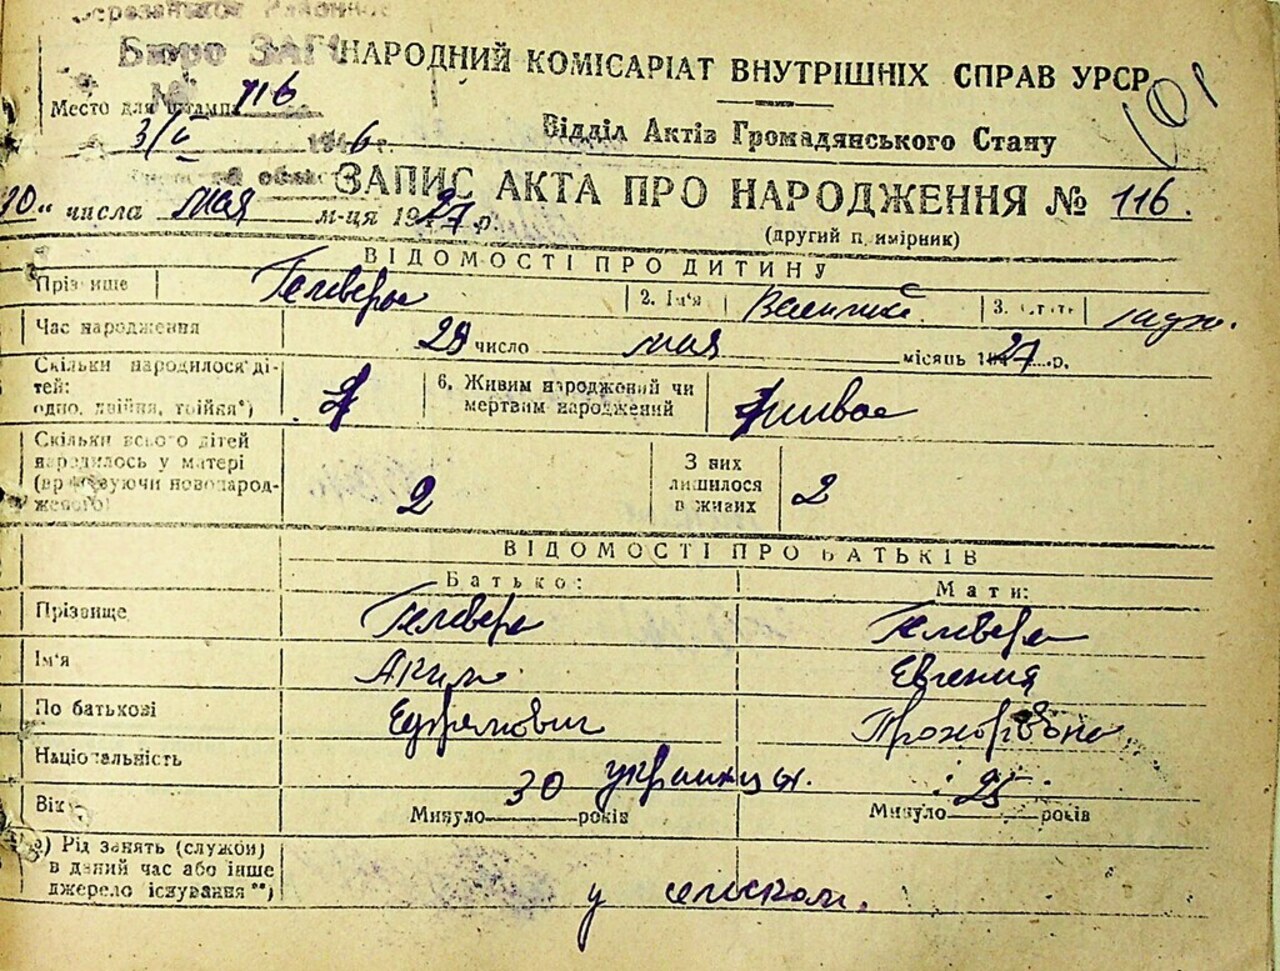 Бюро ЗАГС
НАРОДНИЙ КОМІСАРІАТ ВНУТРІШНІХ СПРАВ УРСР
Место для штампа
№ 116
101
Відділ Актів Громадянського Стану
ЗАПИС АКТА ПРО НАРОДЖЕННЯ № 116.
числа мая м-ця 1927 р.
(другий примірник)
ВІДОМОСТІ ПРО ДИТИНУ
Прізвище Гелевера 2. Ім'я 3. Стать
Час народження 28 число мая місяць 1927 р.
Скільки народилося дітей:
одно, двійня, трійня*)
6. Живим народжений чи
мертвим народжений
живое
Скільки всього дітей
народилось у матері
(враховуючи новонарод-
женого)
2
З них
лишилося
в живих
2
ВІДОМОСТІ ПРО БАТЬКІВ
Батько: Мати:
Прізвище Гелевера Гелевера
Ім'я Аким Евгения
По батькові Ефремович Прохоровна
Національність украинцы.
Вік Минуло 30 років Минуло 25 років
Рід занять (служби)
в даний час або інше
джерело існування**)